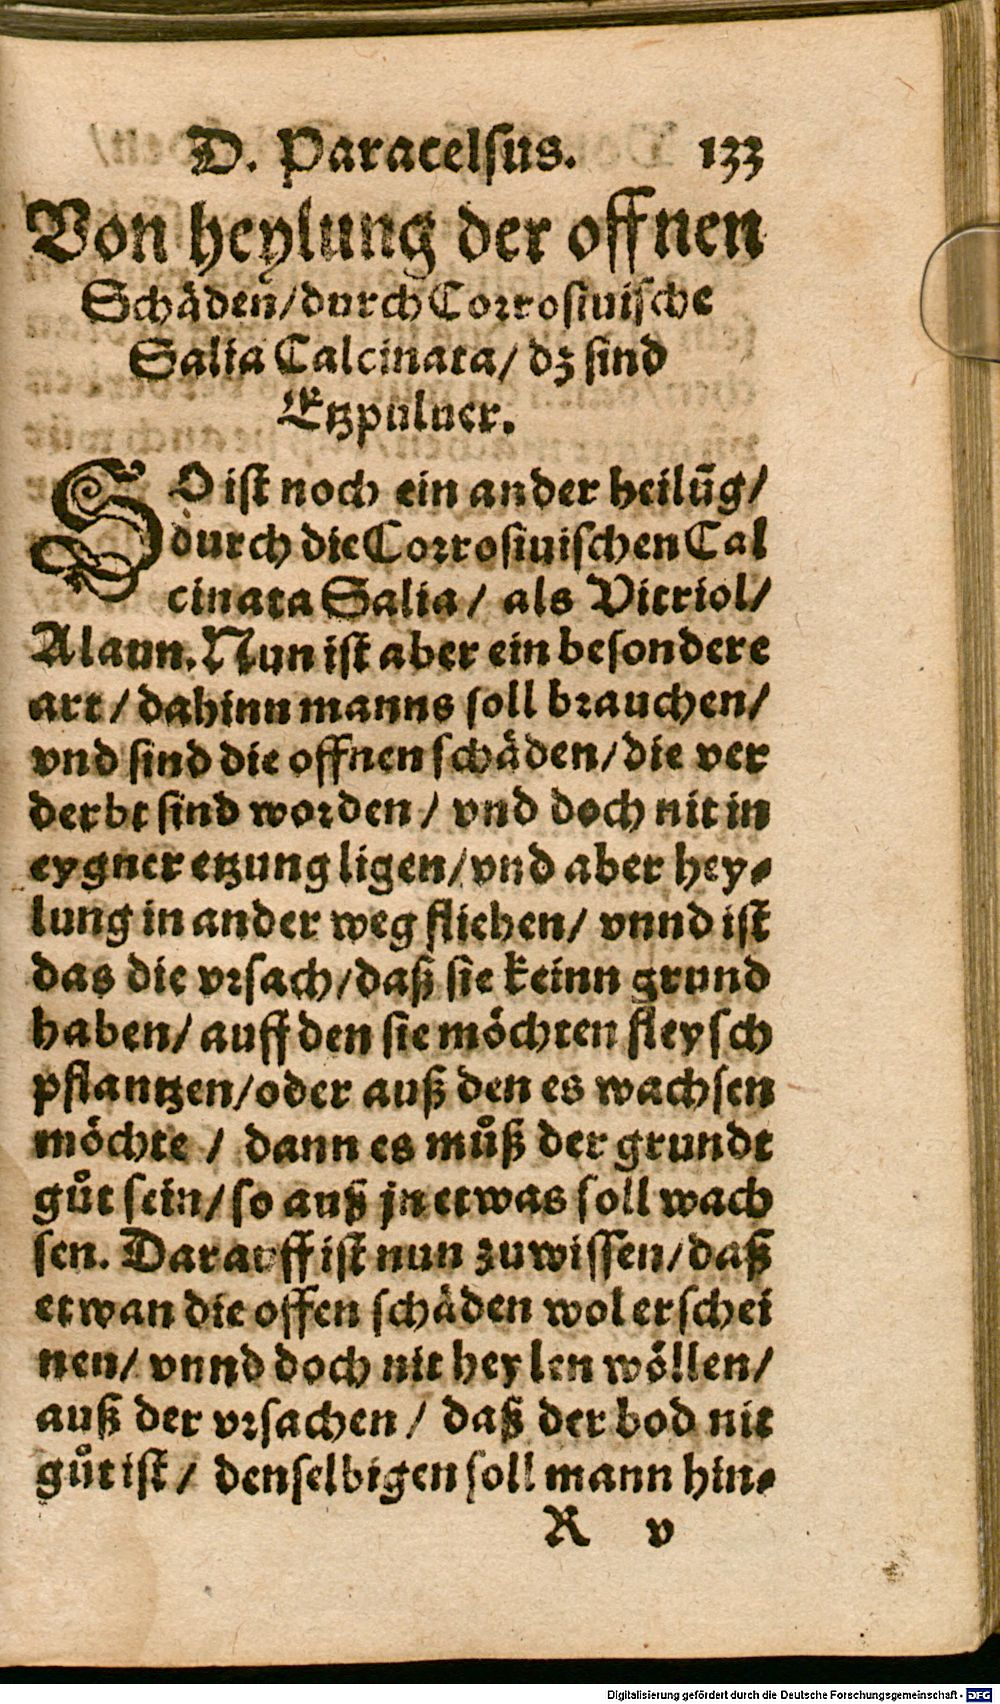 D. Paracelsus. 133
Von heylung der offnen
Schäden/durch Corrosiuische
Salia Calcinata/ dz sind
Etzpuluer.
SO ist noch ein ander heilūg/
durch die Corrosiuischen Cal
cinata Salia/ als Vitriol/
Alaun. Nun ist aber ein besondere
art/ dahinn manns soll brauchen/
vnd sind die offnen schäden/die ver
derbt sind worden/ vnd doch nit in
eygner etzung ligen/vnd aber hey⸗
lung in ander weg fliehen/ vnnd ist
das die vrsach/daß sie keinn grund
haben/ auff den sie möchten fleysch
pflantzen/oder auß den es wachsen
möchte/ dann es můß der grundt
gůt sein/so auß jn etwas soll wach
sen. Darauff ist nun zuwissen/daß
etwan die offen schäden wol erschei
nen/ vnnd doch nit heylen wöllen/
auß der vrsachen/ daß der bod nit
gůt ist/ denselbigen soll mann hin⸗
R v
Digitalisierung gefördert durch die Deutsche Forschungsgemeinschaft - DFG